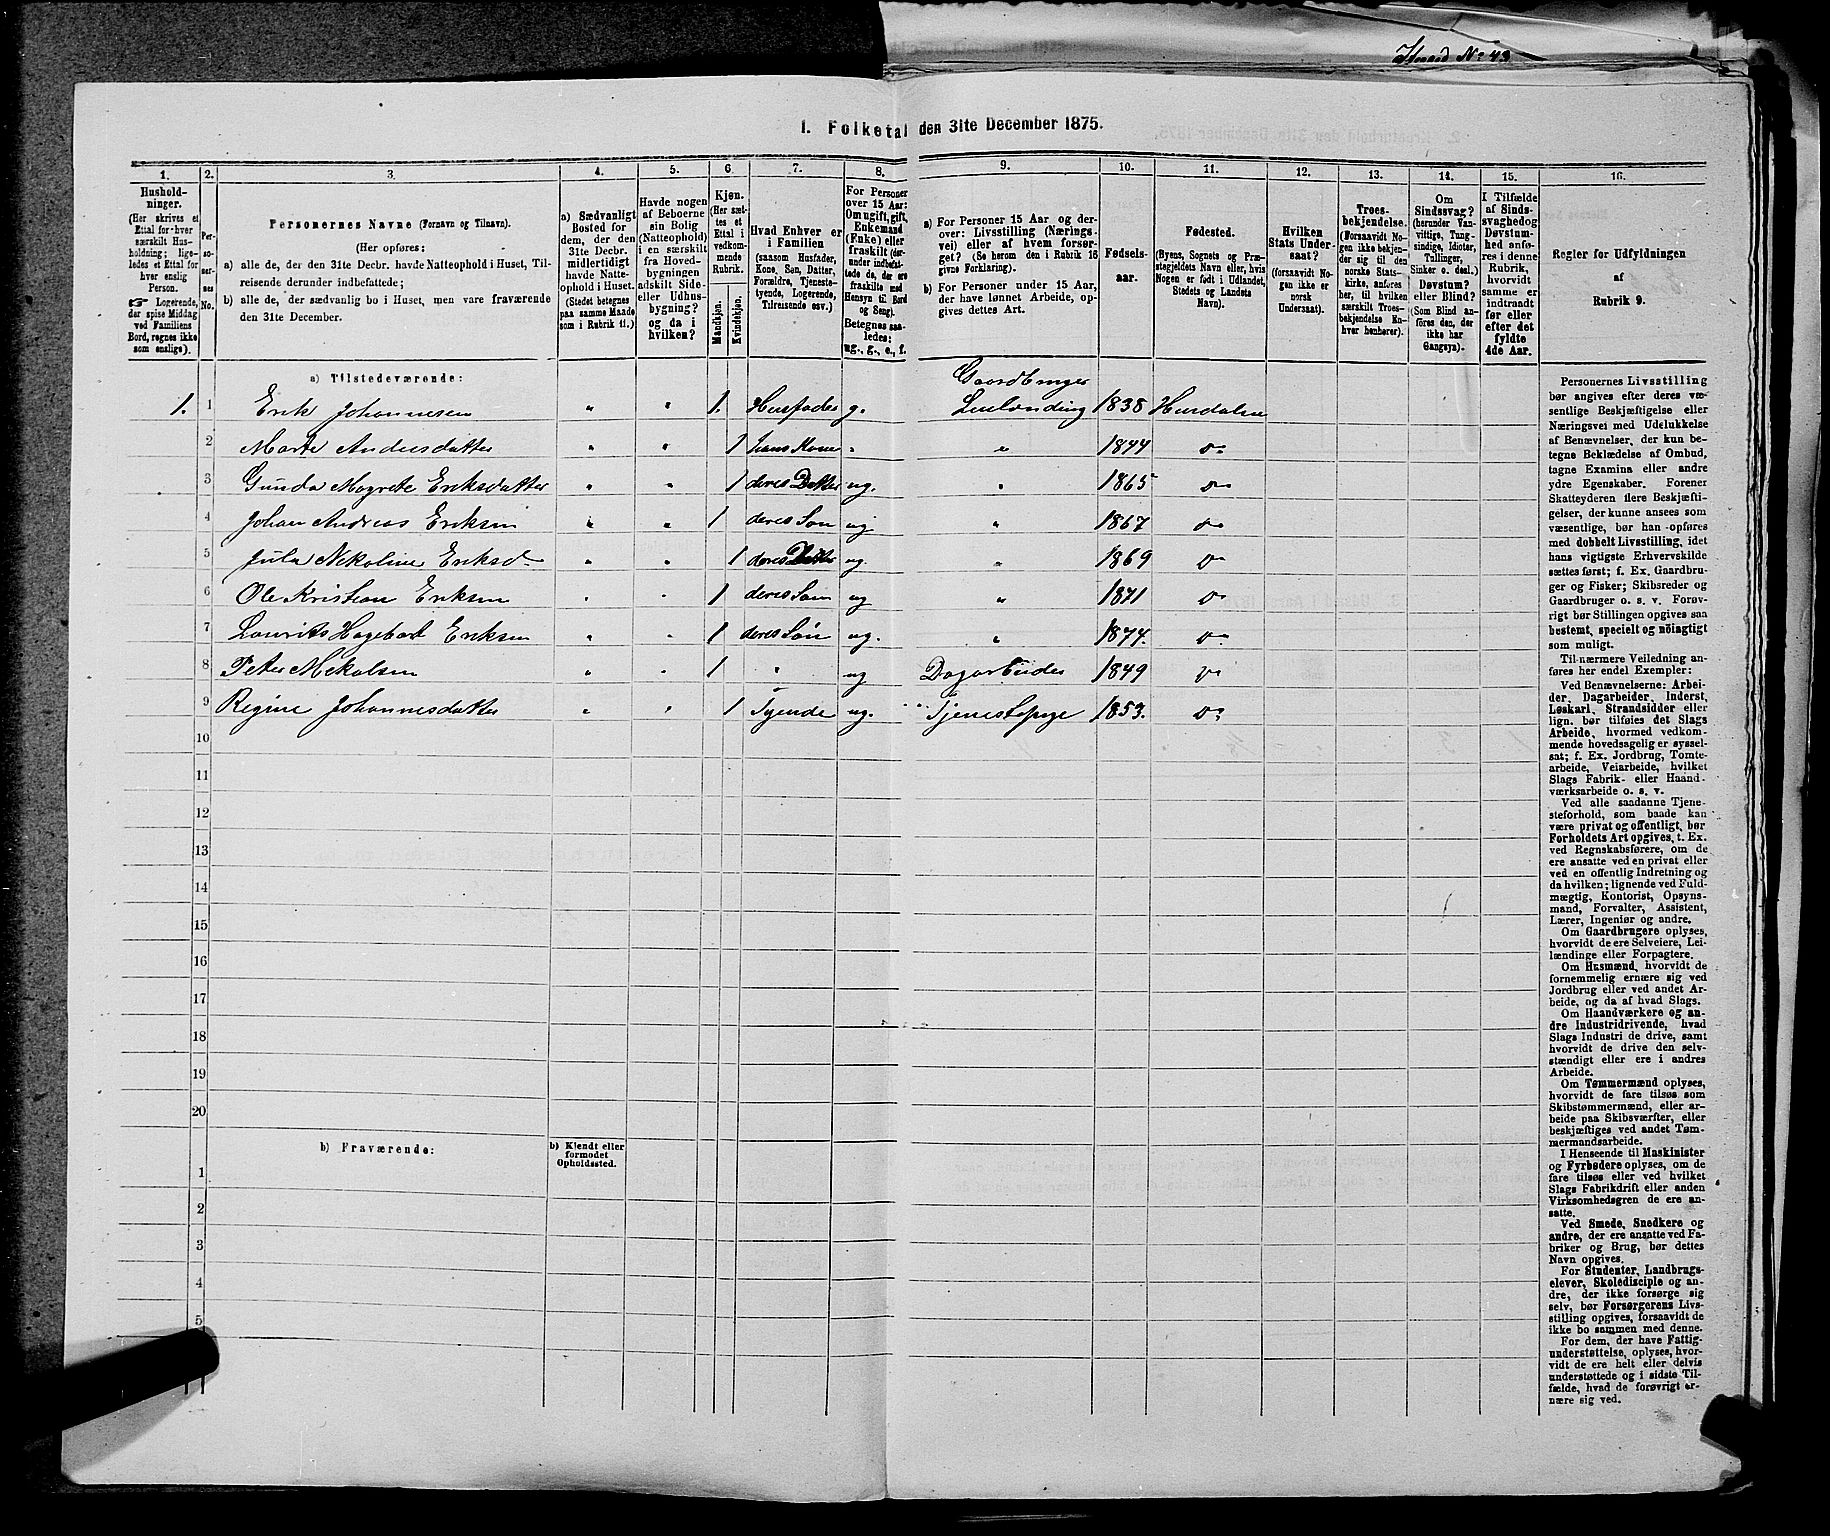 Husid No 43
1. Folketal den 31te December 1875.
1. 2. 3. 4. 5. 6. 7. 8. 9. 10. 11. 12. 13. 14. 15. 16.
Hushold-
ninger.
(Her skrives et
Ettal for hver
særskilt Hus-
holdning; lige-
ledes et Ettal for
hver enslig
Person.
☞ Logerende,
der spise Middag
ved Familiens
Bord, regnes ikke
som enslige).
Per-
so-
ner-
nes
No.
Personernes Navne (Fornavn og Tilnavn).
(Her opføres:
a) alle de, der den 31te Decbr. havde Natteophold i Huset, Til-
reisende derunder indbefattede;
b) alle de, der sædvanlig bo i Huset, men vare fraværende
den 31te December.
a) Sædvanligt
Bosted for
dem, der den
31te Decbr.
midlertidigt
havde Natte-
ophold i Huset.
(Stedet betegnes
paa samme Maade
som i Rubrik 11.)
Havde nogen
af Beboerne
sin Bolig
(Natteophold)
i en særskilt
fra Hoved-
bygningen
adskilt Side-
eller Udhus-
bygning?
og da i
hvilken?
Kjøn.
(Her sæt-
tes et
Ettal i
vedkom-
mende
Rubrik.
Mandkjøn.
Kvindekjøn.
Hvad Enhver er
i Familien
(saasom Husfader,
Kone, Søn, Datter,
Forældre, Tjeneste-
tyende, Logerende,
Tilreisende osv.)
For Personer
over 15 Aar:
Om ugift, gift,
Enkemand
(Enke) eller
fraskilt (der-
under indbefat-
tede de, der ere
fraskilte med
Hensyn til Bord
og Seng).
Betegnes saa-
ledes:
ug., g., e., f.
a) For Personer 15 Aar og der-
over: Livsstilling (Nærings-
vei) eller af hvem forsør-
get? (Se herom den i Rubrik 16
givne Forklaring).
b) For Personer under 15 Aar,
der have lønnet Arbeide, op-
gives dettes Art.
Fødsels-
aar.
Fødested.
(Byens, Sognets og Præ-
stegjeldets Navn eller, hvis
Nogen er født i Udlandet,
Stedets og Landets
Navn).
Hvilken
Stats Under-
saat?
(forsaavidt No-
gen ikke er
norsk
Undersaat).
Troes-
bekjendelse.
(Forsaavidt No-
gen ikke bekjen-
der sig til den
norske Stats-
kirke, anføres
her, til hvilken
særskilt Troes-
bekjendelse En-
hver henhører).
Om
Sindssvag?
(herunder Van-
vittige, Tung-
sindige, Idioter,
Tullinger,
Sinker o. desl.)
Døvstum?
eller Blind?
(Som Blind an-
føres den, der
ikke har
Gangsyn).
I Tilfælde
af Sinds-
svaghed og
Døvstum-
hed anfø-
res i denne
Rubrik,
hvorvidt
samme er
indtraadt
før eller
efter det
fyldte
4de Aar.
Regler for Udfyldningen
af
Rubrik 9.
a) Tilstedeværende:
Gaardbruger
1. 1 Erik Johannesen " " 1. Husfader g. Leilending 1838 Hurdalen
2 Marte Andersdatter " " 1 hans Kone " " 1844 do
3 Gunda Magrete Eriksdatter " " 1 deres Datter ug. " 1865 do
4 Johan Andreas Eriksen " " 1 deres Søn ug " 1867 do
5 Jula Nekoline Eriksd " " 1 deres Datter ug. " 1869 do
6 Ole Kristian Eriksen " " 1 deres Søn ug " 1871 do
7 Laurits Hagebart Eriksen " " 1 deres Søn ug. " 1874. do
8 Peter Mekalsen " " 1 " ug Dagarbeider 1849 do
9 Regine Johannesdatter " " 1 Tyende ug. Tjenestepige 1853. do
10
11
12
13
14
15
16
17
18
19
20
b) Fraværende:
b) Kjendt eller
formodet
Opholdssted.
1
2
3
4
5
Personernes Livsstilling
bør angives efter deres væ-
sentlige Beskjæftigelse eller
Næringsvei med Udelukkelse
af Benævnelser, der kun be-
tegne Beklædelse af Ombud,
tagne Examina eller andre
ydre Egenskaber. Forener
Skatteyderen flere Beskjæfti-
gelser, der kunne ansees som
væsentlige, bør han opføres
med dobbelt Livsstilling, idet
hans vigtigste Erhvervskilde
sættes først; f. Ex. Gaardbru-
ger og Fisker; Skibsreder og
Gaardbruger o. s. v. Forøv-
rigt bør Stillingen opgives saa
bestemt, specielt og nøiagtigt
som muligt.
Til nærmere Veiledning an-
føres her endel Exempler:
Ved Benævnelserne: Arbei-
der, Dagarbeider, Inderst,
Løskarl, Strandsidder eller
lign. bør tilføies det Slags
Arbeide, hvormed vedkom-
mende hovedsagelig er syssel-
sat; f. Ex. Jordbrug, Tomte-
arbeide, Veiarbeide, hvilket
Slags Fabrik- eller Haand-
værksarbeide o. s. v.
Ved alle saadanne Tjene-
steforhold, som baade kan
være privat og offentligt, bør
Forholdets Art opgives, t. Ex.
ved Regnskabsførere, om de
ere ansatte ved en privat eller
ved en offentlig Indretning og
da hvilken; lignende ved Fuld-
mægtig, Kontorist, Opsyns-
mand, Forvalter, Assistent,
Lærer, Ingeniør og andre.
Om Gaardbrugere oplyses,
hvorvidt de ere Selveiere, Lei-
lændinge eller Forpagtere.
Om Husmænd, hvorvidt de
fornemmelig ernære sig ved
Jordbrug eller ved andet Ar-
beide, og da af hvad Slags.
Om Haandværkere og an-
dre Industridrivende, hvad
Slags Industri de drive, samt
hvorvidt de drive den selv-
stændigt eller ere i andres
Arbeide.
Om Tømmermænd oplyses,
hvorvidt de fare tilsøs som
Skibstømmermænd, eller ar-
beide paa Skibsværfter, eller
beskjæftiges ved andet Tøm-
mermandsarbeide.
I Henseende til Maskinister
og Fyrbødere oplyses, om de
fare tilsøs eller ved hvilket
Slags Fabrikdrift eller anden
Virksomhedsgren de ere an-
satte.
Ved Smede, Snedkere og
andre, der ere ansatte ved Fa-
briker og Brug, bør dettes
Navn opgives.
For Studenter, Landbrugs-
elever, Skoledisciple og an-
dre, der ikke forsørge sig
selv, bør Forsørgerens Livs-
stilling opgives, forsaavidt de
ikke bo sammen med denne.
For dem, der have Fattig-
understøttelse, oplyses, hvor-
vidt de ere helt eller delvis
understøttede og i sidste Til-
fælde, hvad de forøvrigt er-
nære sig ved.